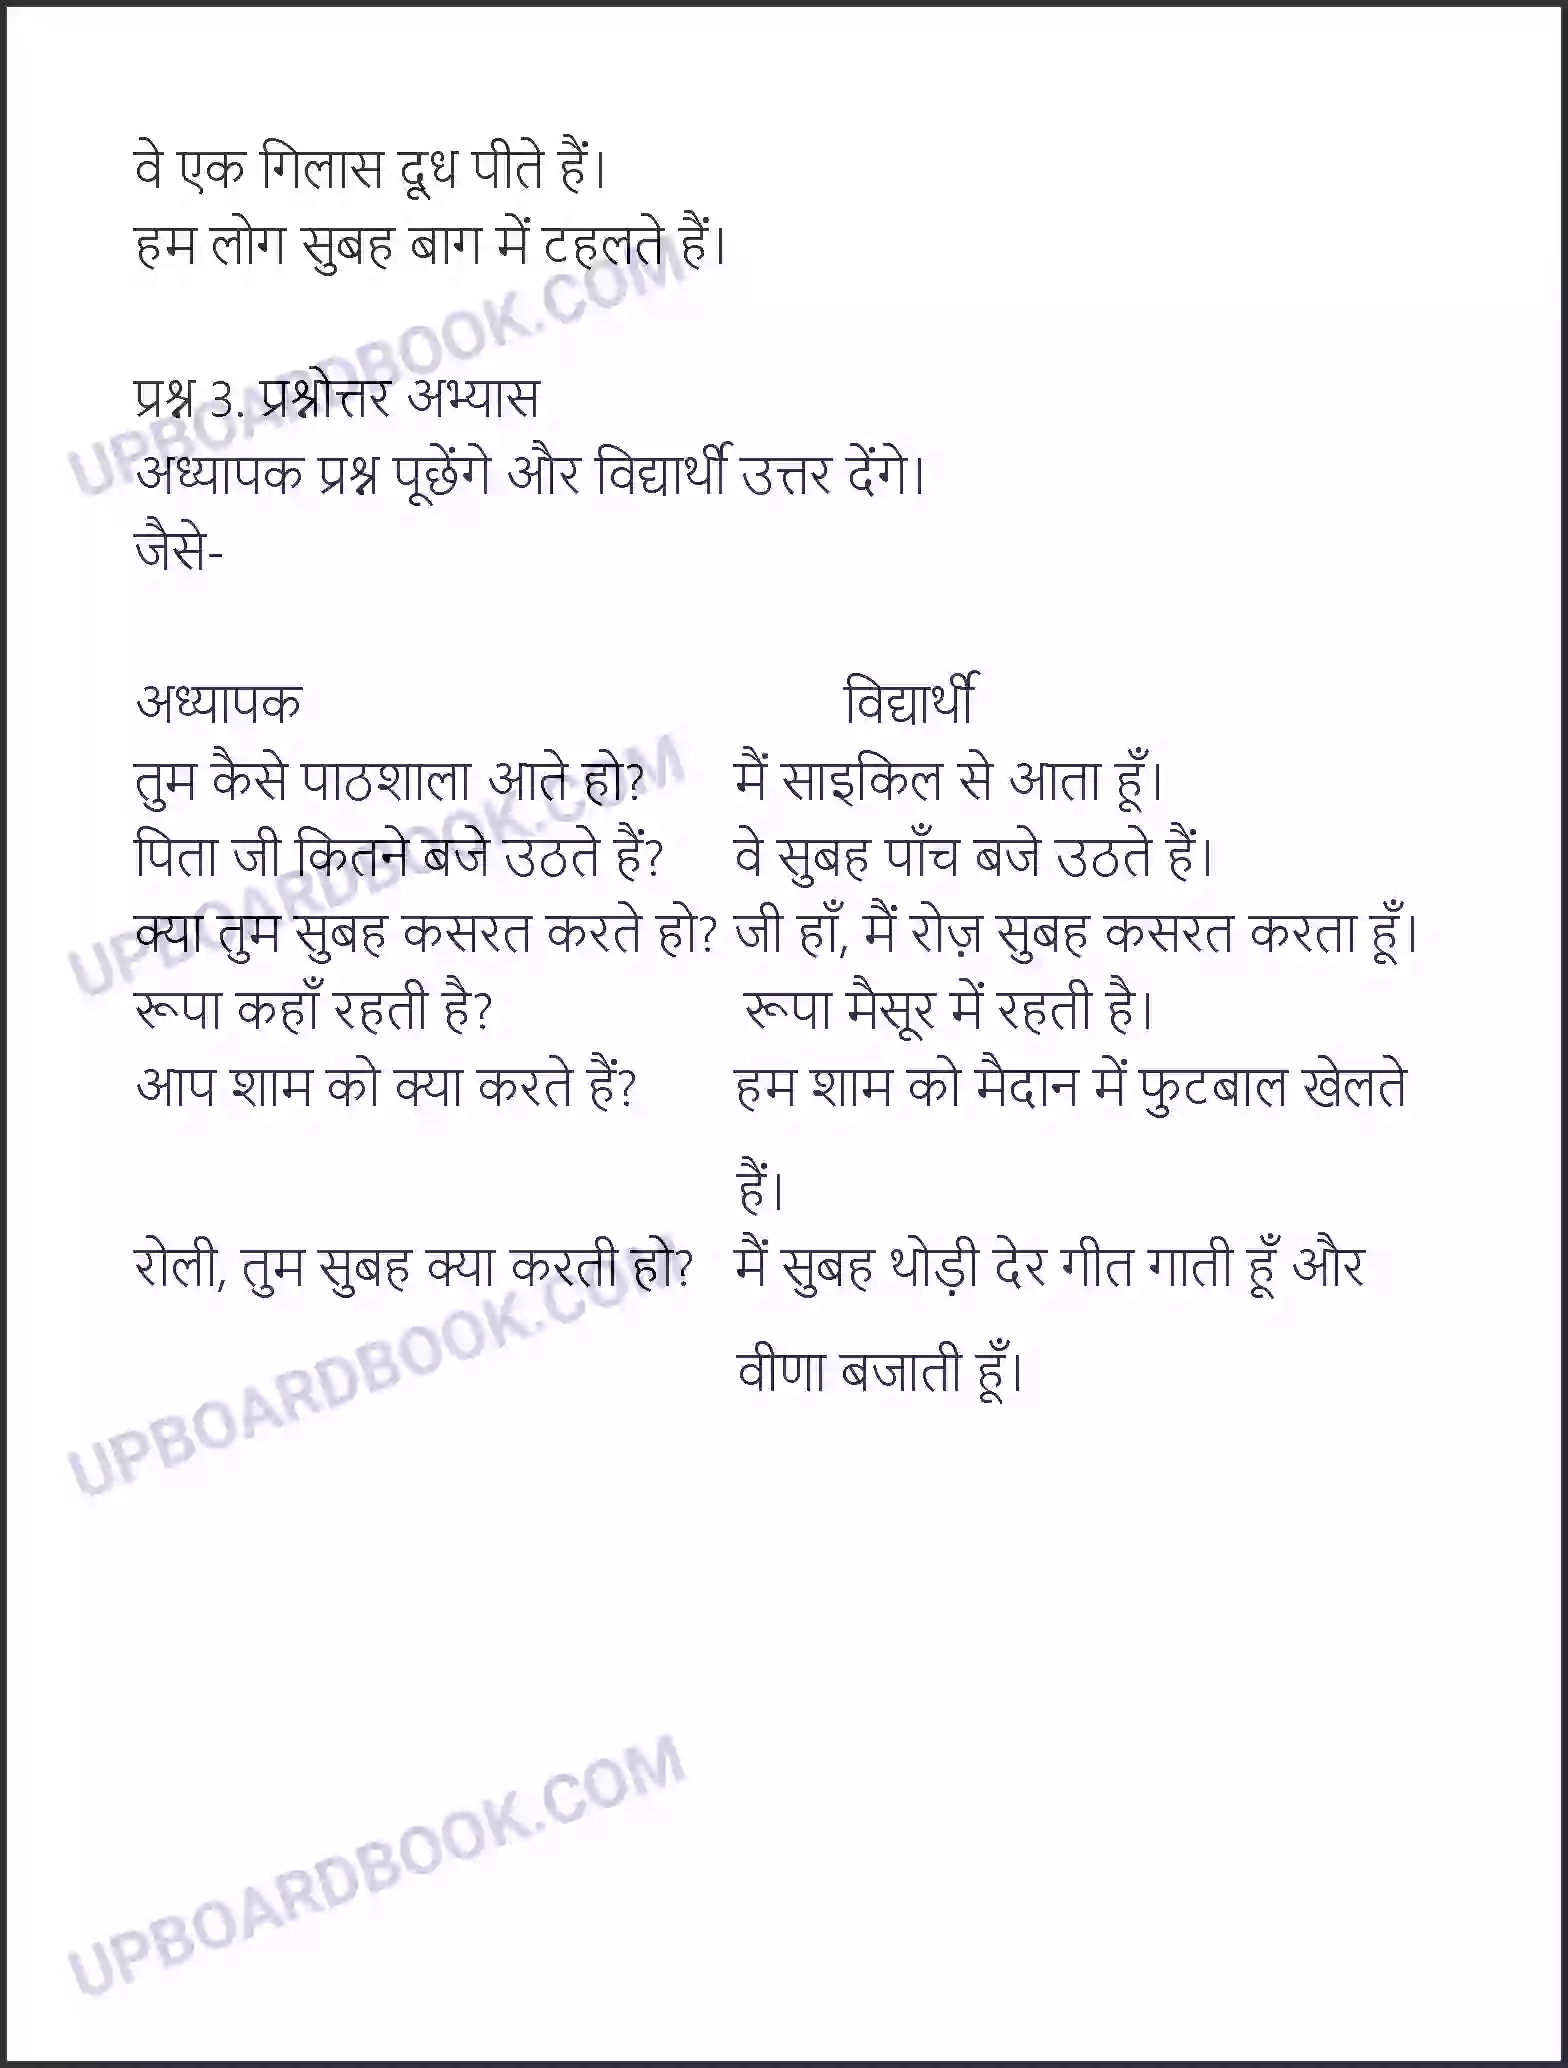 वे एक गिलास दूध पीते हैं।
हम लोग सुबह बाग में टहलते हैं।
प्रश्न 3. प्रश्नोत्तर अभ्यास
अध्यापक प्रश्न पूछेंगे और विद्यार्थी उत्तर देंगे।
जैसे-
अध्यापक विद्यार्थी
तुम कैसे पाठशाला आते हो? मैं साइकिल से आता हूँ।
पिता जी कितने बजे उठते हैं? वे सुबह पाँच बजे उठते हैं।
क्या तुम सुबह कसरत करते हो? जी हाँ, मैं रोज़ सुबह कसरत करता हूँ।
रूपा कहाँ रहती है? रूपा मैसूर में रहती है।
आप शाम को क्या करते हैं? हम शाम को मैदान में फुटबाल खेलते
हैं।
रोली, तुम सुबह क्या करती हो? मैं सुबह थोड़ी देर गीत गाती हूँ और
वीणा बजाती हूँ।
UPBOARDBOOK.COM
UPBOARDBOOK.COM
UPBOARDBOOK.COM
UPBOARDBOOK.COM